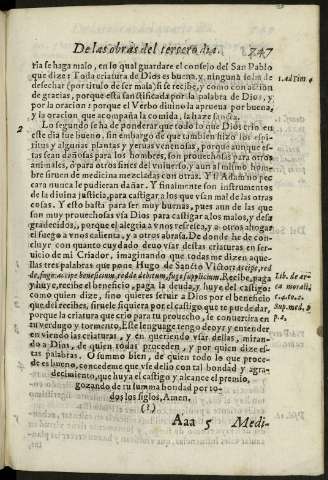 De las obras del tercero dia. 747
ria se haga malo, en lo qual guardare el consejo del San Pablo
que dize: Toda criatura de Dios es buena, y ninguna se ha de
desechar (por titulo de ser mala) si se recibe, y come con accion
de gracias, porque esta santificada por la palabra de Dios, y
por la oracion: porque el Verbo diuino la aprueua por buena,
y la oracion que acompaña la comida, la haze santa.
1. ad Tim. 4
2 Lo segundo se ha de ponderar que todo lo que Dios crio en
este dia fue bueno, sin embargo de que tambien hizo los espi-
ritus y algunas plantas y yeruas venenosas, porque aunque es-
tas sean dañosas para los hombres, son prouechosas para otros
animales, o para otros fines del vniuerso, y aun al mismo hom-
bre siruen de medicina mezcladas con otras. Y si Adan no pec
cara nunca le pudieran dañar. Y finalmente son instrumentos
de la diuina justicia, para castigar a los que vsan mal de las otras
cosas. Y esto basta para ser muy buenas, pues aun de las que
son muy prouechosas vsa Dios para castigar a los malos, y desa
gradecidos, porque el alegria a vnos refresca, y a otros ahoga:
el fuego a vnos calienta, y a otros abrasa. De donde he de con-
cluyr con quanto cuydado deuo vsar destas criaturas en ser-
uicio de mi Criador, imaginando que todas me dizen aque-
llas tres palabras que pone Hugo de Sancto Victor: Accipe, red
de, fuge. accipe beneficium, redde debitum, fuge supplicium. Recibe, paga
y huye, recibe el beneficio, paga la deuda, y huye del castigo:
como quien dize, sino quieres seruir a Dios por el beneficio
que del recibes, siruele siquiera por el castigo que te puede dar,
porque la criatura que crio para tu prouecho, se conuertira en
tu verdugo y tormento. Este lenguage tengo de oyr y entender
en viendo las criaturas, y en queriendo vsar dellas, miran-
do a Dios, de quien todas proceden, y por quien dize es-
tas palabras. O summo bien, de quien todo lo que proce-
de es bueno, concedeme que vse dello con tal bondad y agra-
decimiento, que huya el castigo y alcance el premio,
gozando de tu summa bondad por to-
dos los siglos, Amen.
Lib. de ar-
Sup. med. 9
p. 2.
(?)
Aaa 5 Medi-